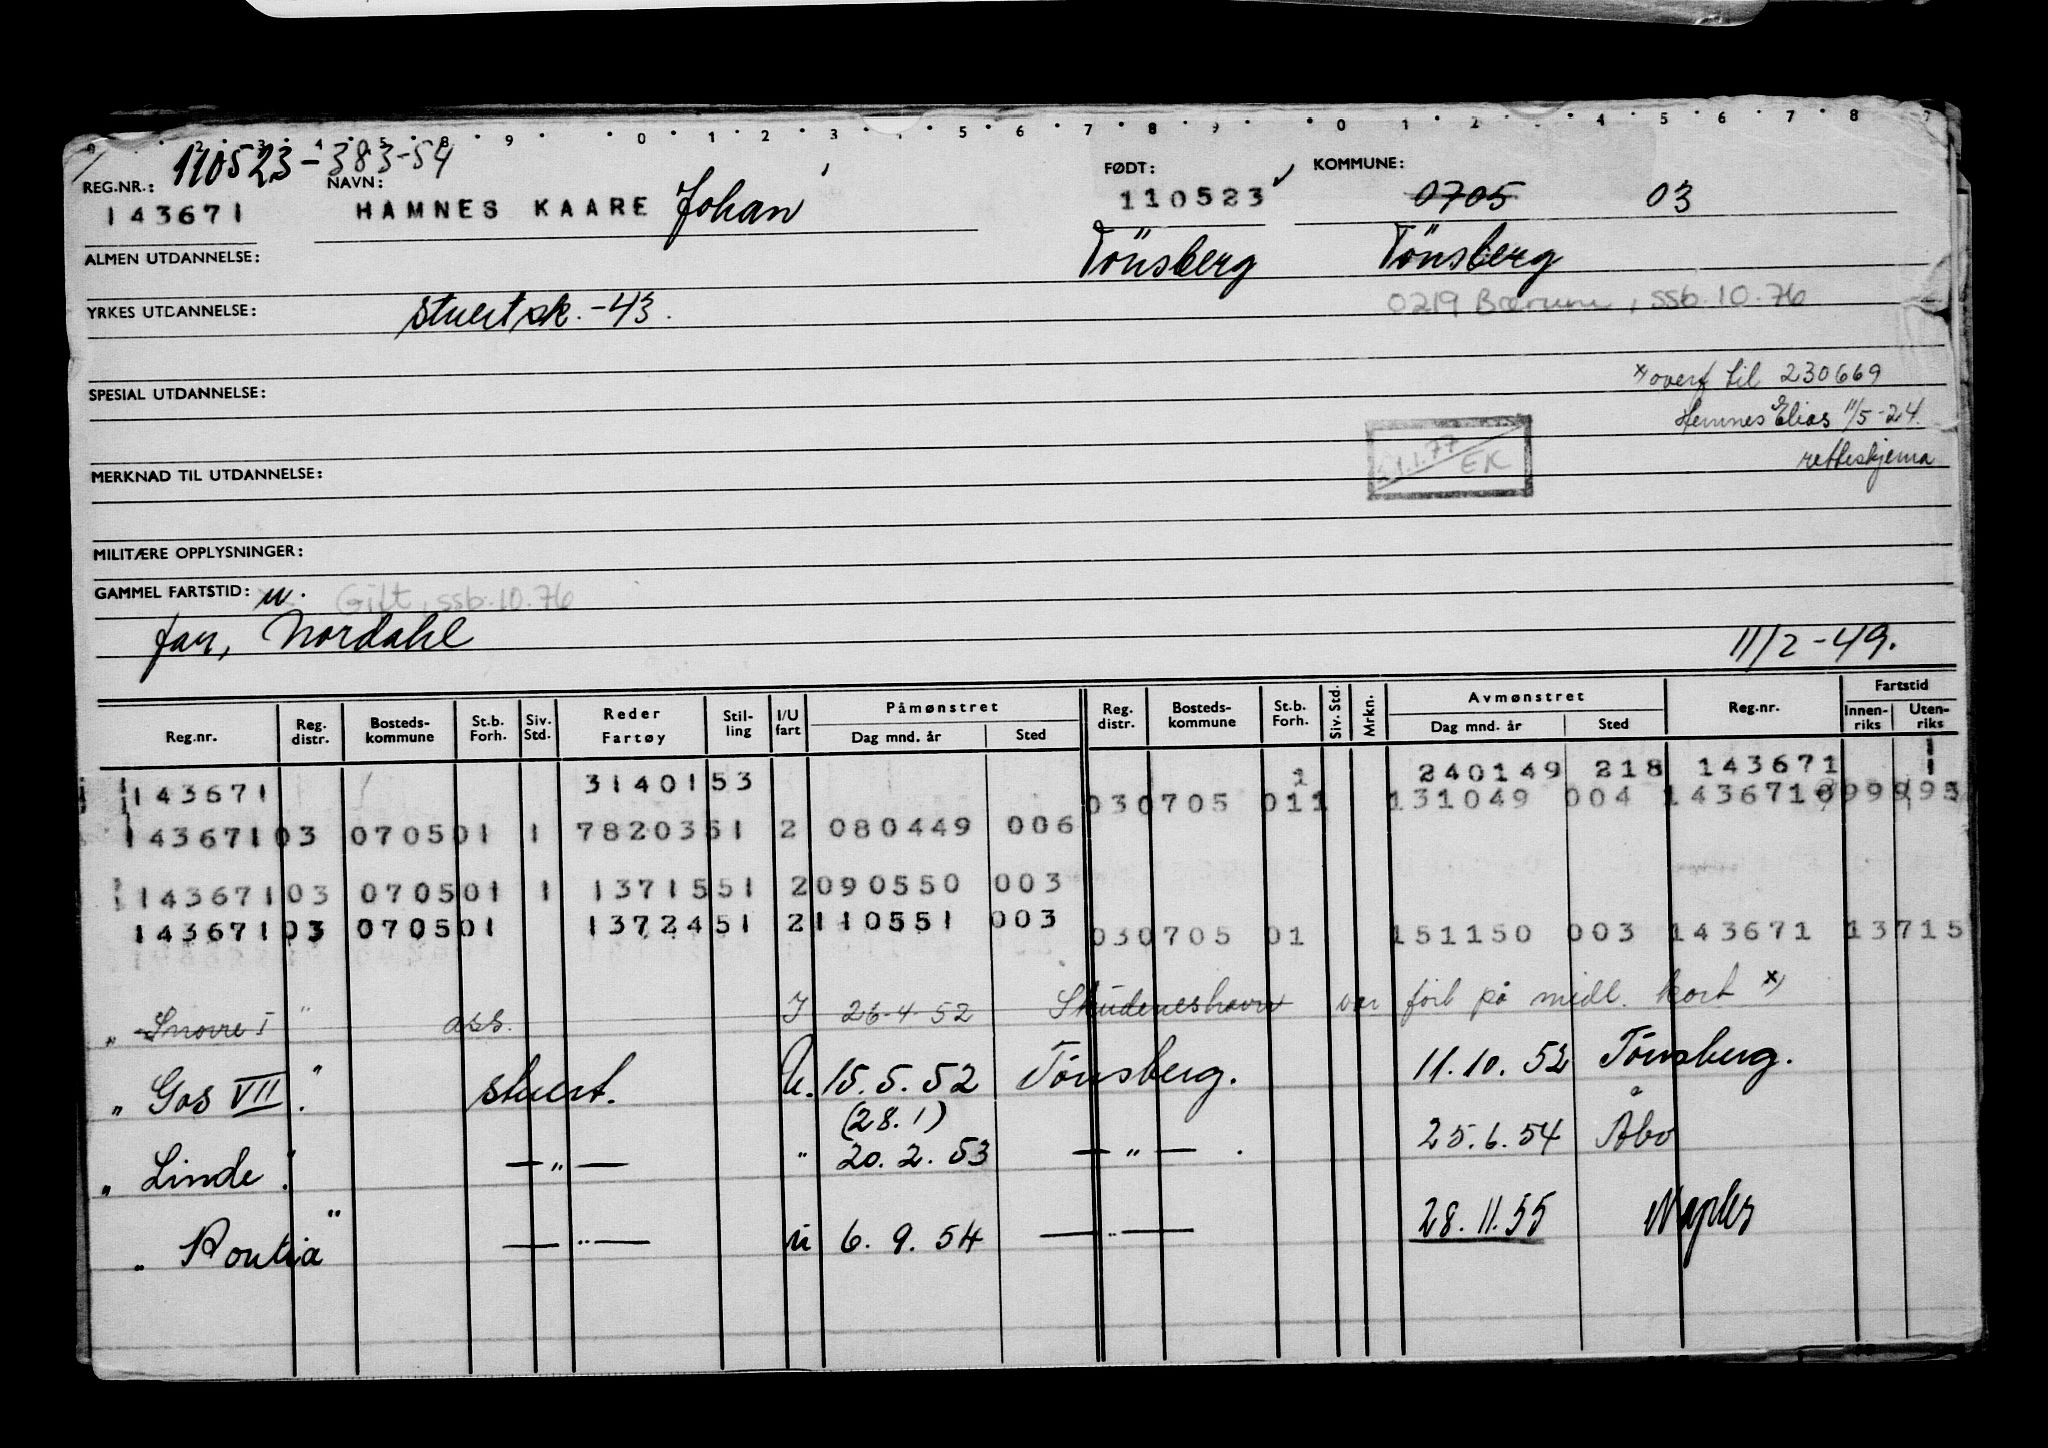 110523-383-54
REG.NR.: NAVN: FØDT: KOMMUNE:
143671 HAMNES KAARE Johan 110523 0705 03
ALMEN UTDANNELSE: Tönsberg Tönsberg
YRKES UTDANNELSE: stuertsk. -43. 0219 Bærum, ssb.10.76
SPESIAL UTDANNELSE: x) overf til 230669
Hemnes Elias 11/5-24.
MERKNAD TIL UTDANNELSE: 21.1.77 EK retteskjema
MILITÆRE OPPLYSNINGER:
GAMMEL FARTSTID: u. Gift, ssb.10.76
far, Nordahl 11/2-49.
Reg.nr. Reg. distr. Bosteds- kommune St.b. Forh. Siv. Std. Reder Fartøy Stil- ling I/U fart Påmønstret Dag mnd. år Sted Reg. distr. Bosteds- kommune St.b. Forh. Siv. Std. Mrkn. Avmønstret Dag mnd. år Sted Reg.nr. Fartstid Innen- riks Uten- riks
143671 3140153 240149 218 143671 1
030705 011 131049 004 143671
143671 03 0705 01 1 7820351 2 080449 006
143671 03 0705 01 1 1371551 2 090550 003
143671 03 0705 01 1372451 2 110551 003
030705 01 151150 003 143671 13715
" Snovre I " ass. I 26-4-52 Skudeneshavn var ført på midl. kort x)
" Gos VII " stuert. U. 15.5.52 Tönsberg. 11.10.52 Tönsberg.
(28.1)
" Linde " —"— " 20.2.53 —"— . 25.6.54 Åbo
" Pontia " —"— u 6.9.54 —"— 28.11.55 Naples